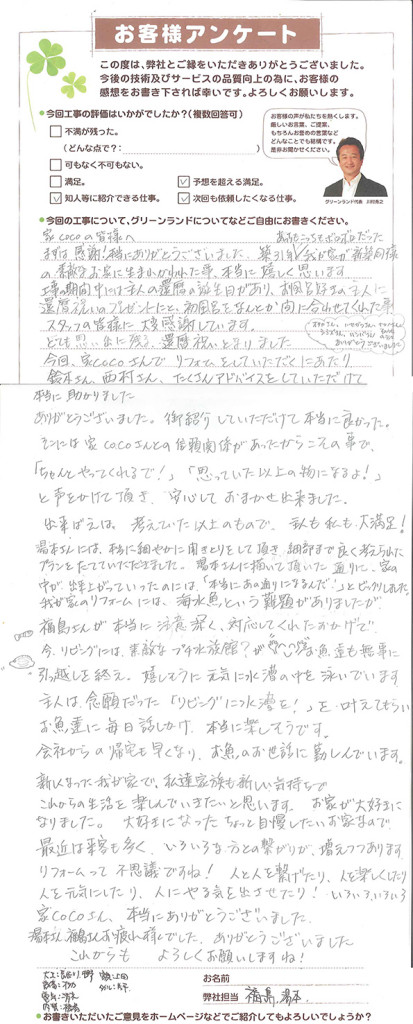 お客様アンケート
この度は、弊社とご縁をいただきありがとうございました。
今後の技術及びサービスの品質向上の為に、お客様の
感想をお書き下されば幸いです。よろしくお願いします。
●今回工事の評価はいかがでしたか？(複数回答可)
不満が残った。
(どんな点で？：
可もなく不可もない。
満足。
予想を超える満足。
知人等に紹介できる仕事。
次回も依頼したくなる仕事。
お客様の声が私たちを熱くします。
厳しいお言葉、ご提案、
もちろんお誉めの言葉など
どんなことでも結構です。
是非お聞かせください。
グリーンランド代表
●今回の工事について、グリーンランドについてなどご自由にお書きください。
家COCOの皆様へ
まずは感謝!本当にありがとうございました。築31年 我が家が新築同様
の素敵なお家に生まれかわれた事、本当に嬉しく思います
工事の期間中には主人の還暦の誕生日があり、お風呂好きの主人に
還暦祝いのプレゼントにと、初風呂をなんとか間に合わせてくれた事
スタッフの皆様に大変感謝しています。
とても思い出に残る、還暦祝いとなりました
今回、家COCOさんで リフォームをしていただくにあたり
鈴木さん、西村さん、たくさんアドバイスをしていただけて
本当に助かりました
ありがとうございました。御紹介していただけて本当に良かった。
そこには家COCOさんとの信頼関係があったからこその事で、
「ちゃんとやってくれるで!」「思っていた以上の物になるよ!」
と声をかけて頂き、安心しておまかせ出来ました。
出来ばえは、考えていた以上のもので、主人も私も、大満足!
湯本さんには、本当に細やかに聞きとりをして頂き、細部まで良く考えられた
プランをたてていただきました。湯本さんに描いて頂いた通りに、家の
中が、出来上がっていったのには「本当にあの通りになるんだ!」とビックリしました。
我が家のリフォームには、海水魚という難題がありましたが
福島さんが本当に注意深く、対応してくれたおかげで
今、リビングには、素敵なプチ水族館?が お魚達も無事に
引越しを終え、嬉しそうに元気に水槽の中を泳いでいます
主人は、念願だった「リビングに水槽を!」を叶えてもらい
お魚達に毎日話しかけ、本当に楽しそうです。
会社からの帰宅も早くなり、お魚のお世話に勤しんでいます。
新しくなった我が家で、私達家族も新しい気持ちで
これからの生活を楽しんでいきたいと思います。 お家が大好きに
なりました。 大好きになった ちょっと自慢したいお家なので
最近は来客も多く、いろいろな方との繋がりが、増えつつあります
リフォームって不思議ですね! 人と人を繋げたり、人を楽しくしたり
人を元気にしたり、人にやる気を出させたり! いろいろいろいろ
家COCOさん、本当にありがとうございました。
湯本さん、福島さんお疲れ様でした。ありがとうございました
これからも よろしくお願いしますね!
お名前
弊社担当 福島、湯本
●お書きいただいたご意見をホームページなどでご紹介してもよろしいでしょうか？